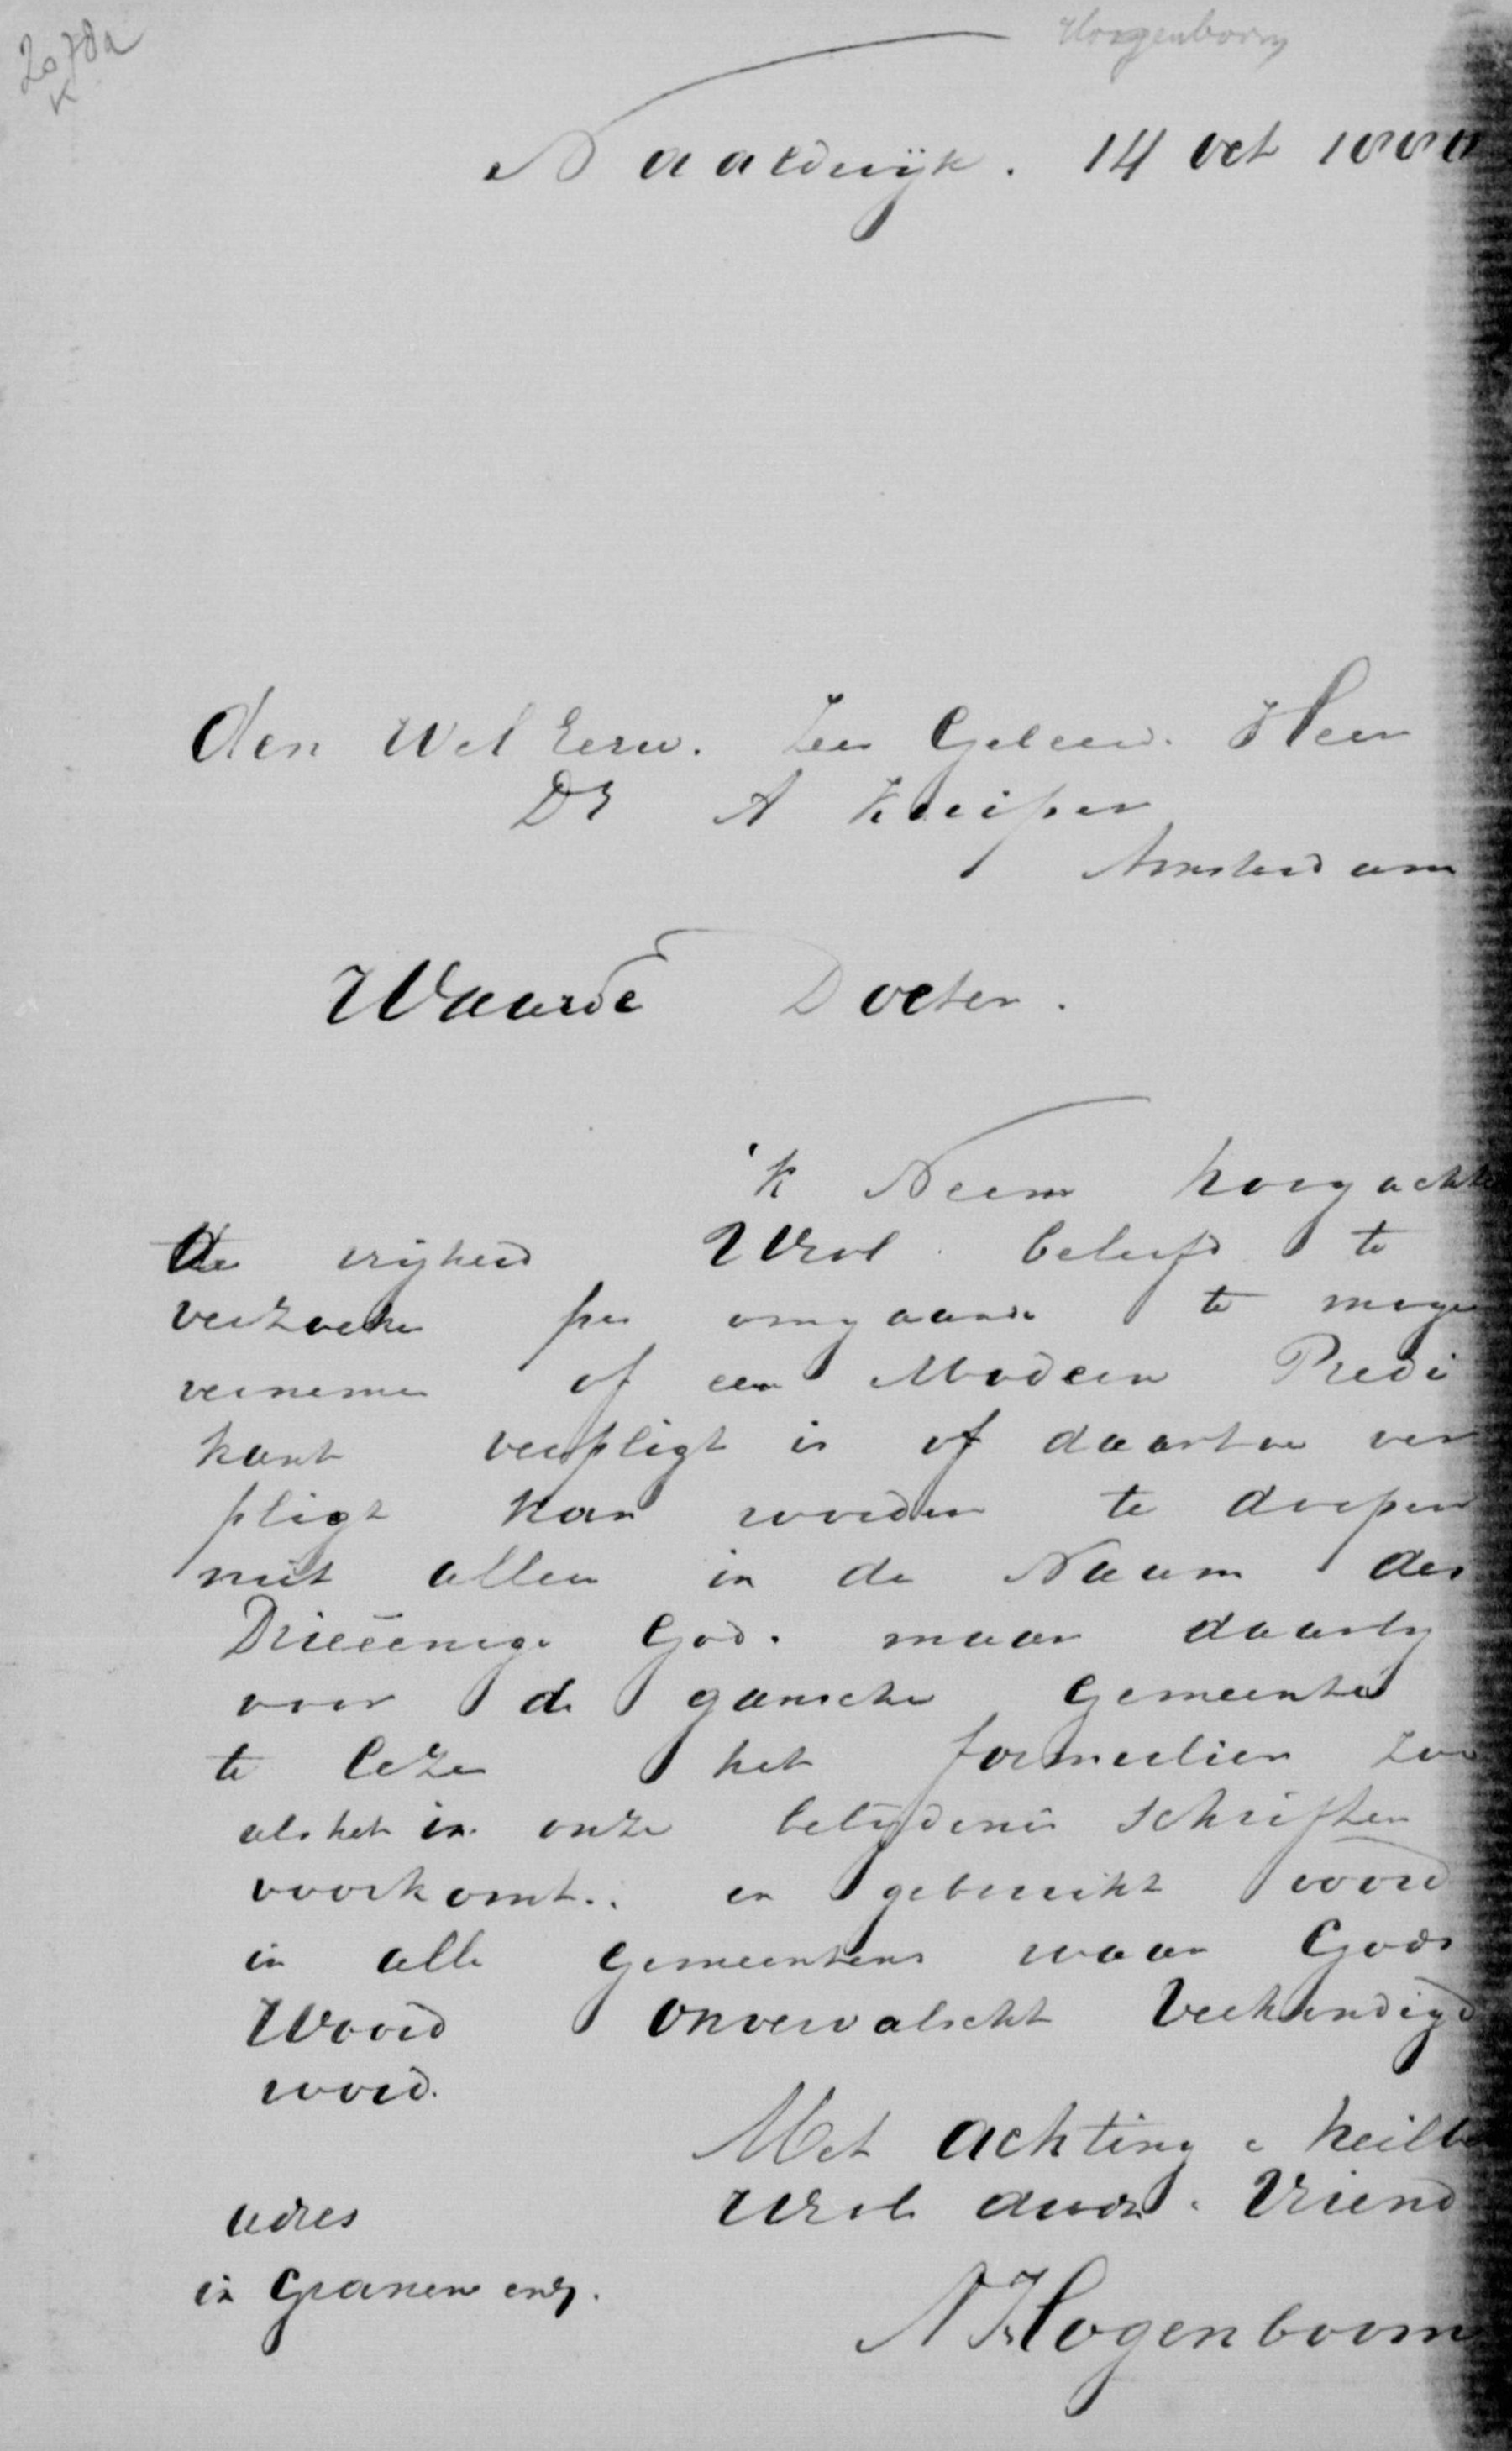 2078a
K
Hoogenboom
Naaldwijk. 14 Oct 1880
den Wel Eerw. Zeer Geleerd. Heer
Dr A Kuiper
Amsterdam
Waarde Docter.
'k Neem hoogacht
de vrijheid UEd beleefd te
verzoeken per omgaande te mogen
vernemen of een Modern Predi
kant verpligt is of daartoe ver
pligt kan worden te doopen
niet alleen in de Naam des
Drieëenige God. maar daarby
voor de gansche Gemeente
te leze het formulier zoo
als het in onze belijdenis Schriften
voorkomt.. en gebruikt word
in alle gemeentens waar Gods
Woord onvervalscht Verkundigd
word.
Met achting & heilb
UEd dwdr. Vriend
adres
in Granen enz.
N Hogenboom